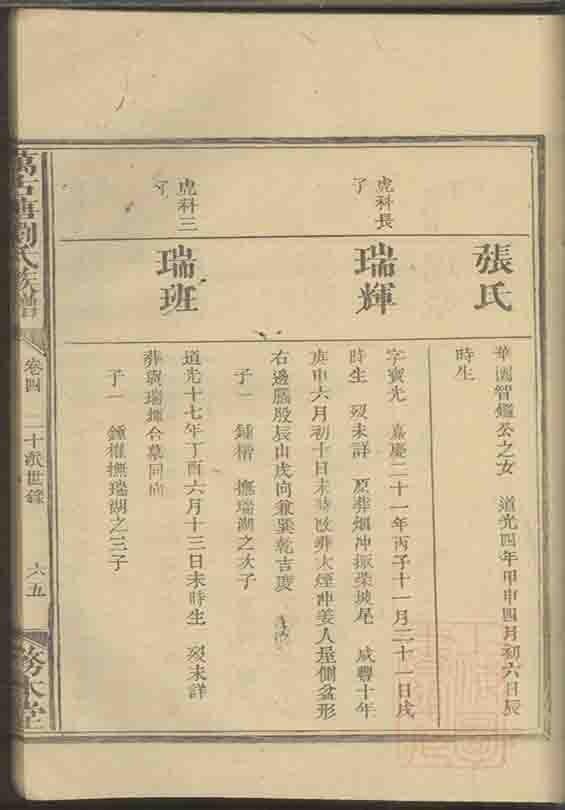 張氏
華國智鑑公之女 道光四年甲申四月初六日辰
時生
虎科長
子
瑞輝
字寶光 嘉慶二十一年丙子十一月二十一日戌
時生 歿未詳 原葬烟冲振榮坡尾 咸豐十年
庚申六月初十日未時改葬大煙冲姜人屋側盆形
右邊腦股辰山戌向兼巽乾吉度
子一 鍾楷 撫瑞湖之次子
虎科三
子
瑞班
道光十七年丁酉六月十三日未時生 歿未詳
葬與瑞輝合墓同向
子一 鍾權撫瑞湖之三子
萬古塘劉氏族譜
卷四 二十派世錄
六五
務本堂